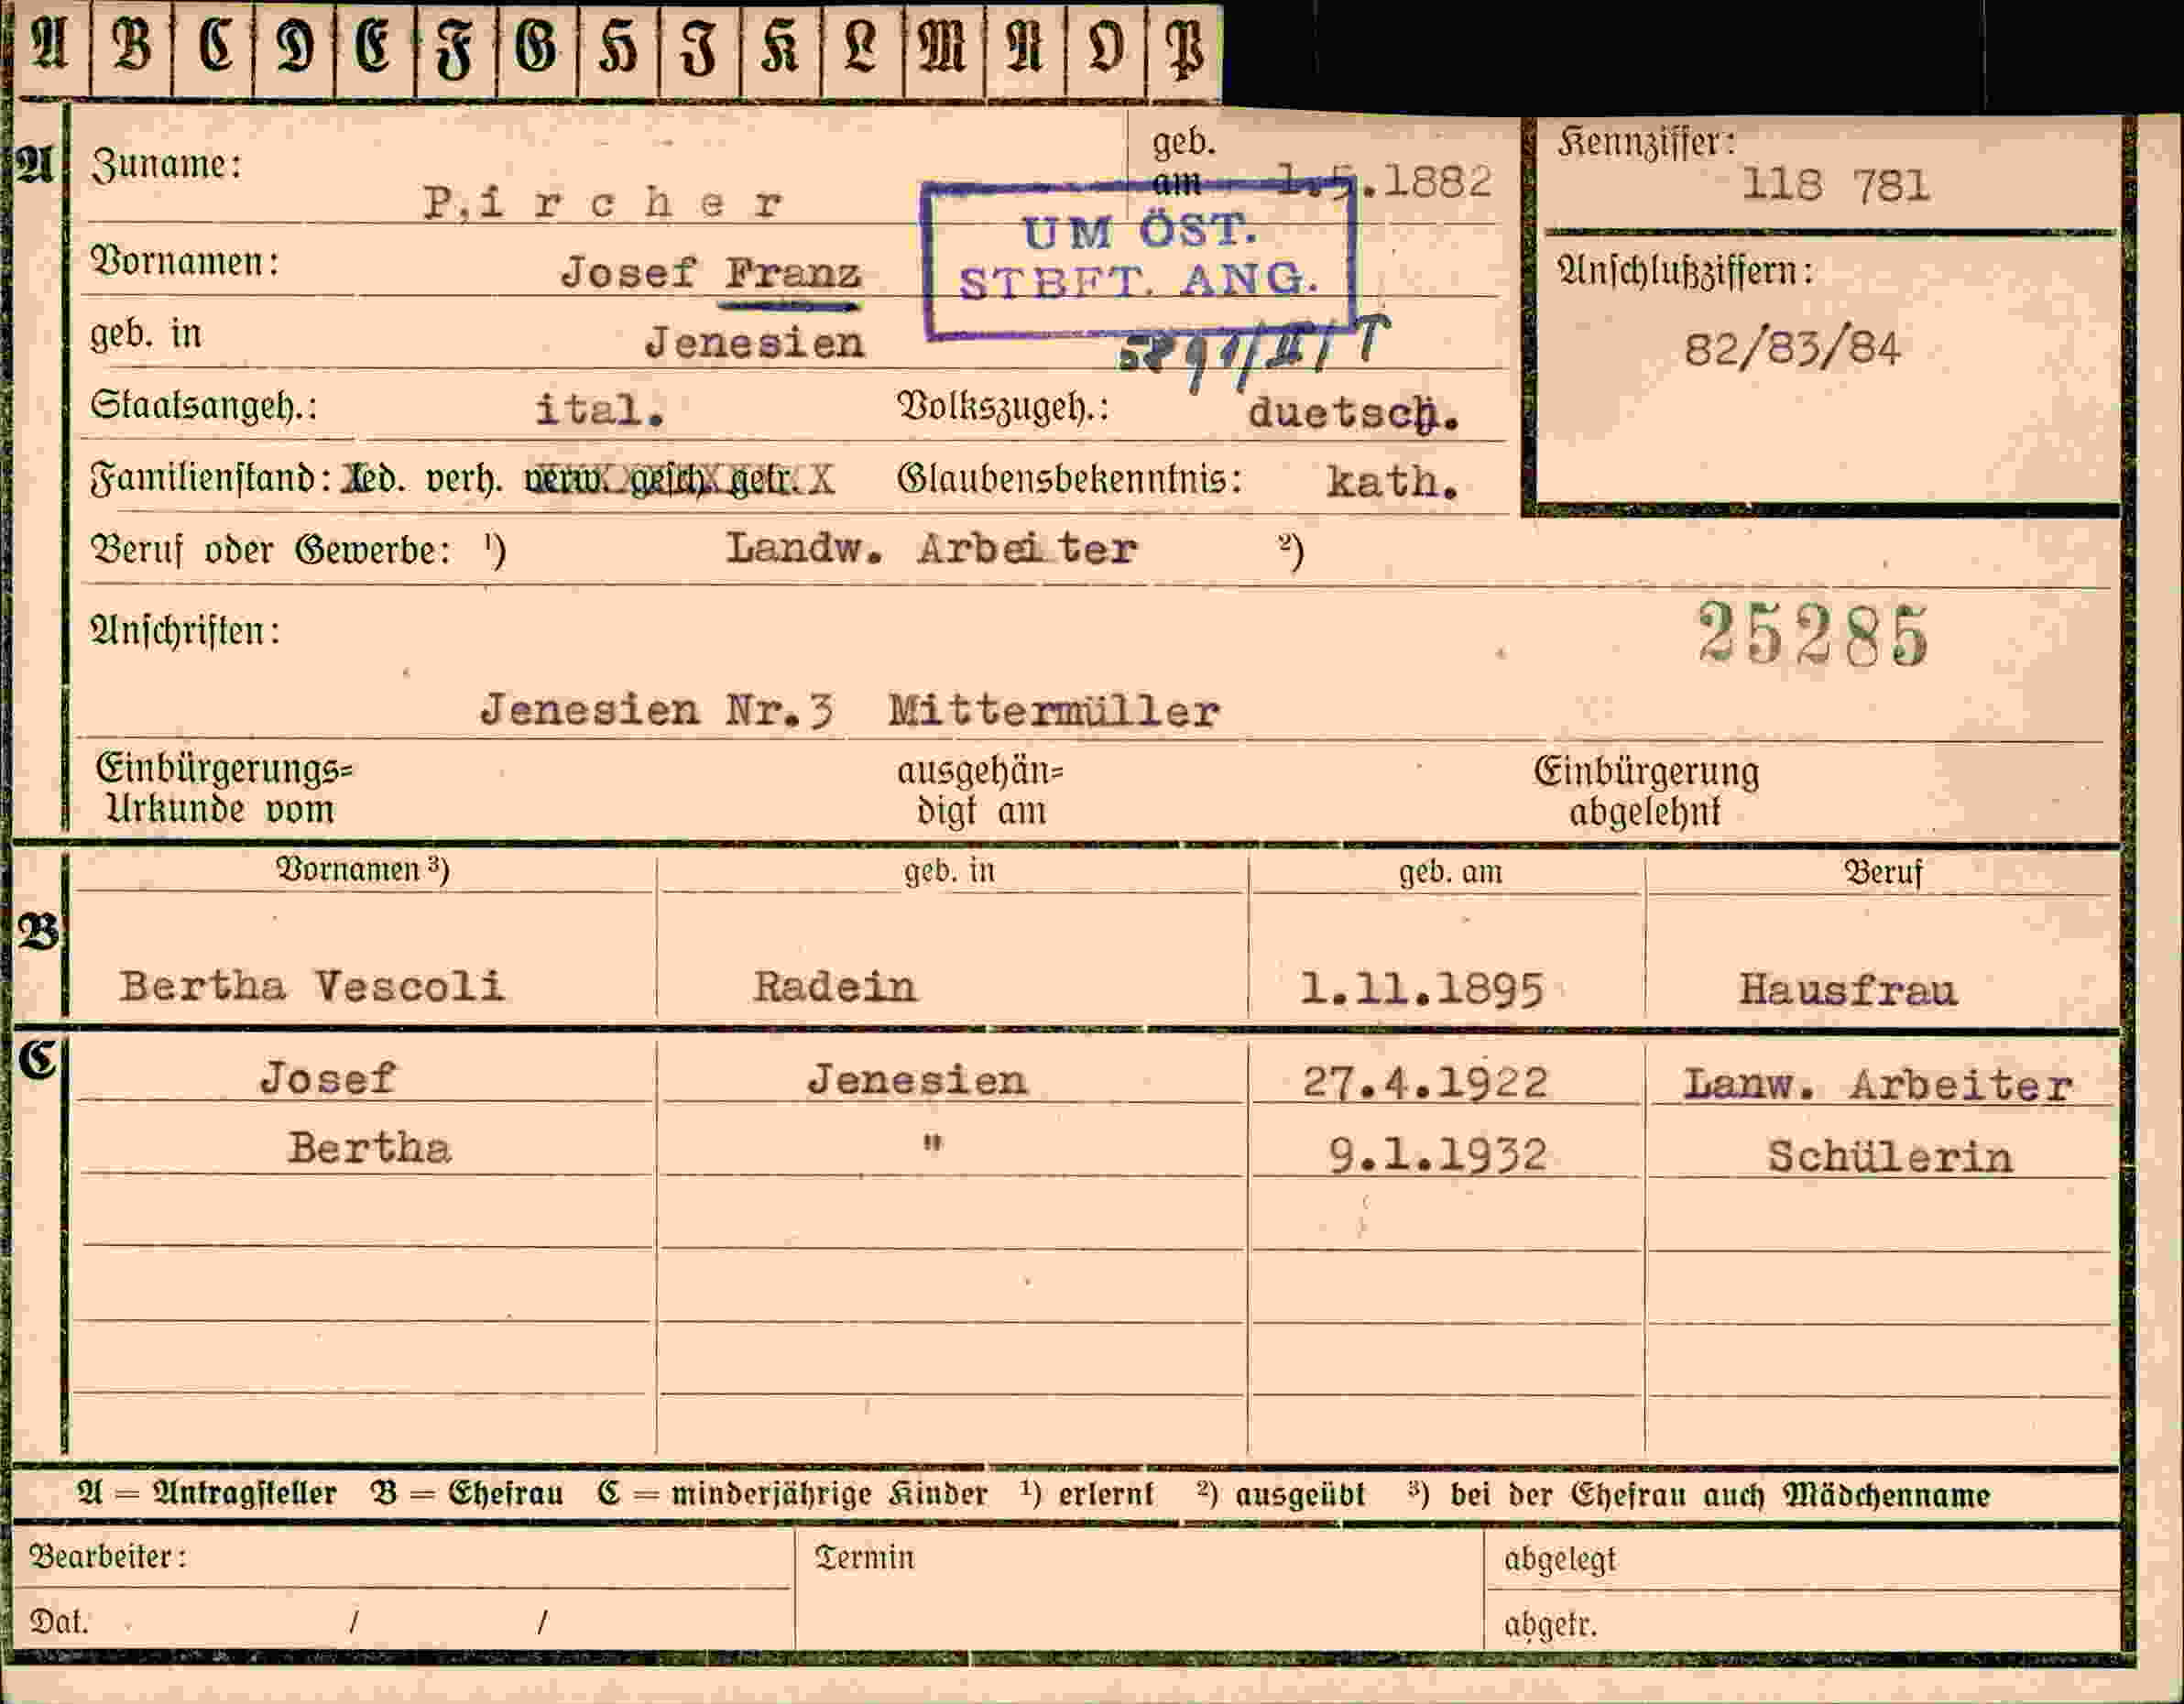 A B C D E F G H I K L M N O P
A Zuname: P,ircher geb. am 1.5.1882
Kennziffer: 118 781
UM ÖST.
STBFT. ANG.
Vornamen: Josef Franz
Anschlußziffern:
82/83/84
geb. in Jenesien
Staatsangeh.: ital. Volkszugeh.: duetsch.
Familienstand: led. verh. verw. gesch. getr. X Glaubensbekenntnis: kath.
Beruf oder Gewerbe: ¹) Landw. Arbeiter ²)
Anschriften: 25285
Jenesien Nr.3 Mittermüller
Einbürgerungs= ausgehän= Einbürgerung
Urkunde vom digt am abgelehnt
Vornamen ³) geb. in geb. am Beruf
B Bertha Vescoli Radein 1.11.1895 Hausfrau
C Josef Jenesien 27.4.1922 Lanw. Arbeiter
Bertha " 9.1.1932 Schülerin
A = Antragsteller B = Ehefrau C = minderjährige Kinder ¹) erlernt ²) ausgeübt ³) bei der Ehefrau auch Mädchenname
Bearbeiter: Termin abgelegt
Dat. / / abgetr.